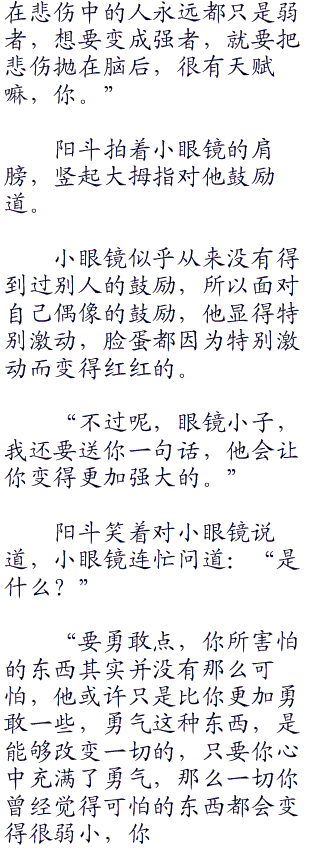 在悲伤中的人永远都只是弱
者，想要变成强者，就要把
悲伤抛在脑后，很有天赋
嘛，你。”
阳斗拍着小眼镜的肩
膀，竖起大拇指对他鼓励
道。
小眼镜似乎从来没有得
到过别人的鼓励，所以面对
自己偶像的鼓励，他显得特
别激动，脸蛋都因为特别激
动而变得红红的。
“不过呢，眼镜小子，
我还要送你一句话，他会让
你变得更加强大的。”
阳斗笑着对小眼镜说
道，小眼镜连忙问道：“是
什么？”
“要勇敢点，你所害怕
的东西其实并没有那么可
怕，他或许只是比你更加勇
敢一些，勇气这种东西，是
能够改变一切的，只要你心
中充满了勇气，那么一切你
曾经觉得可怕的东西都会变
得很弱小，你